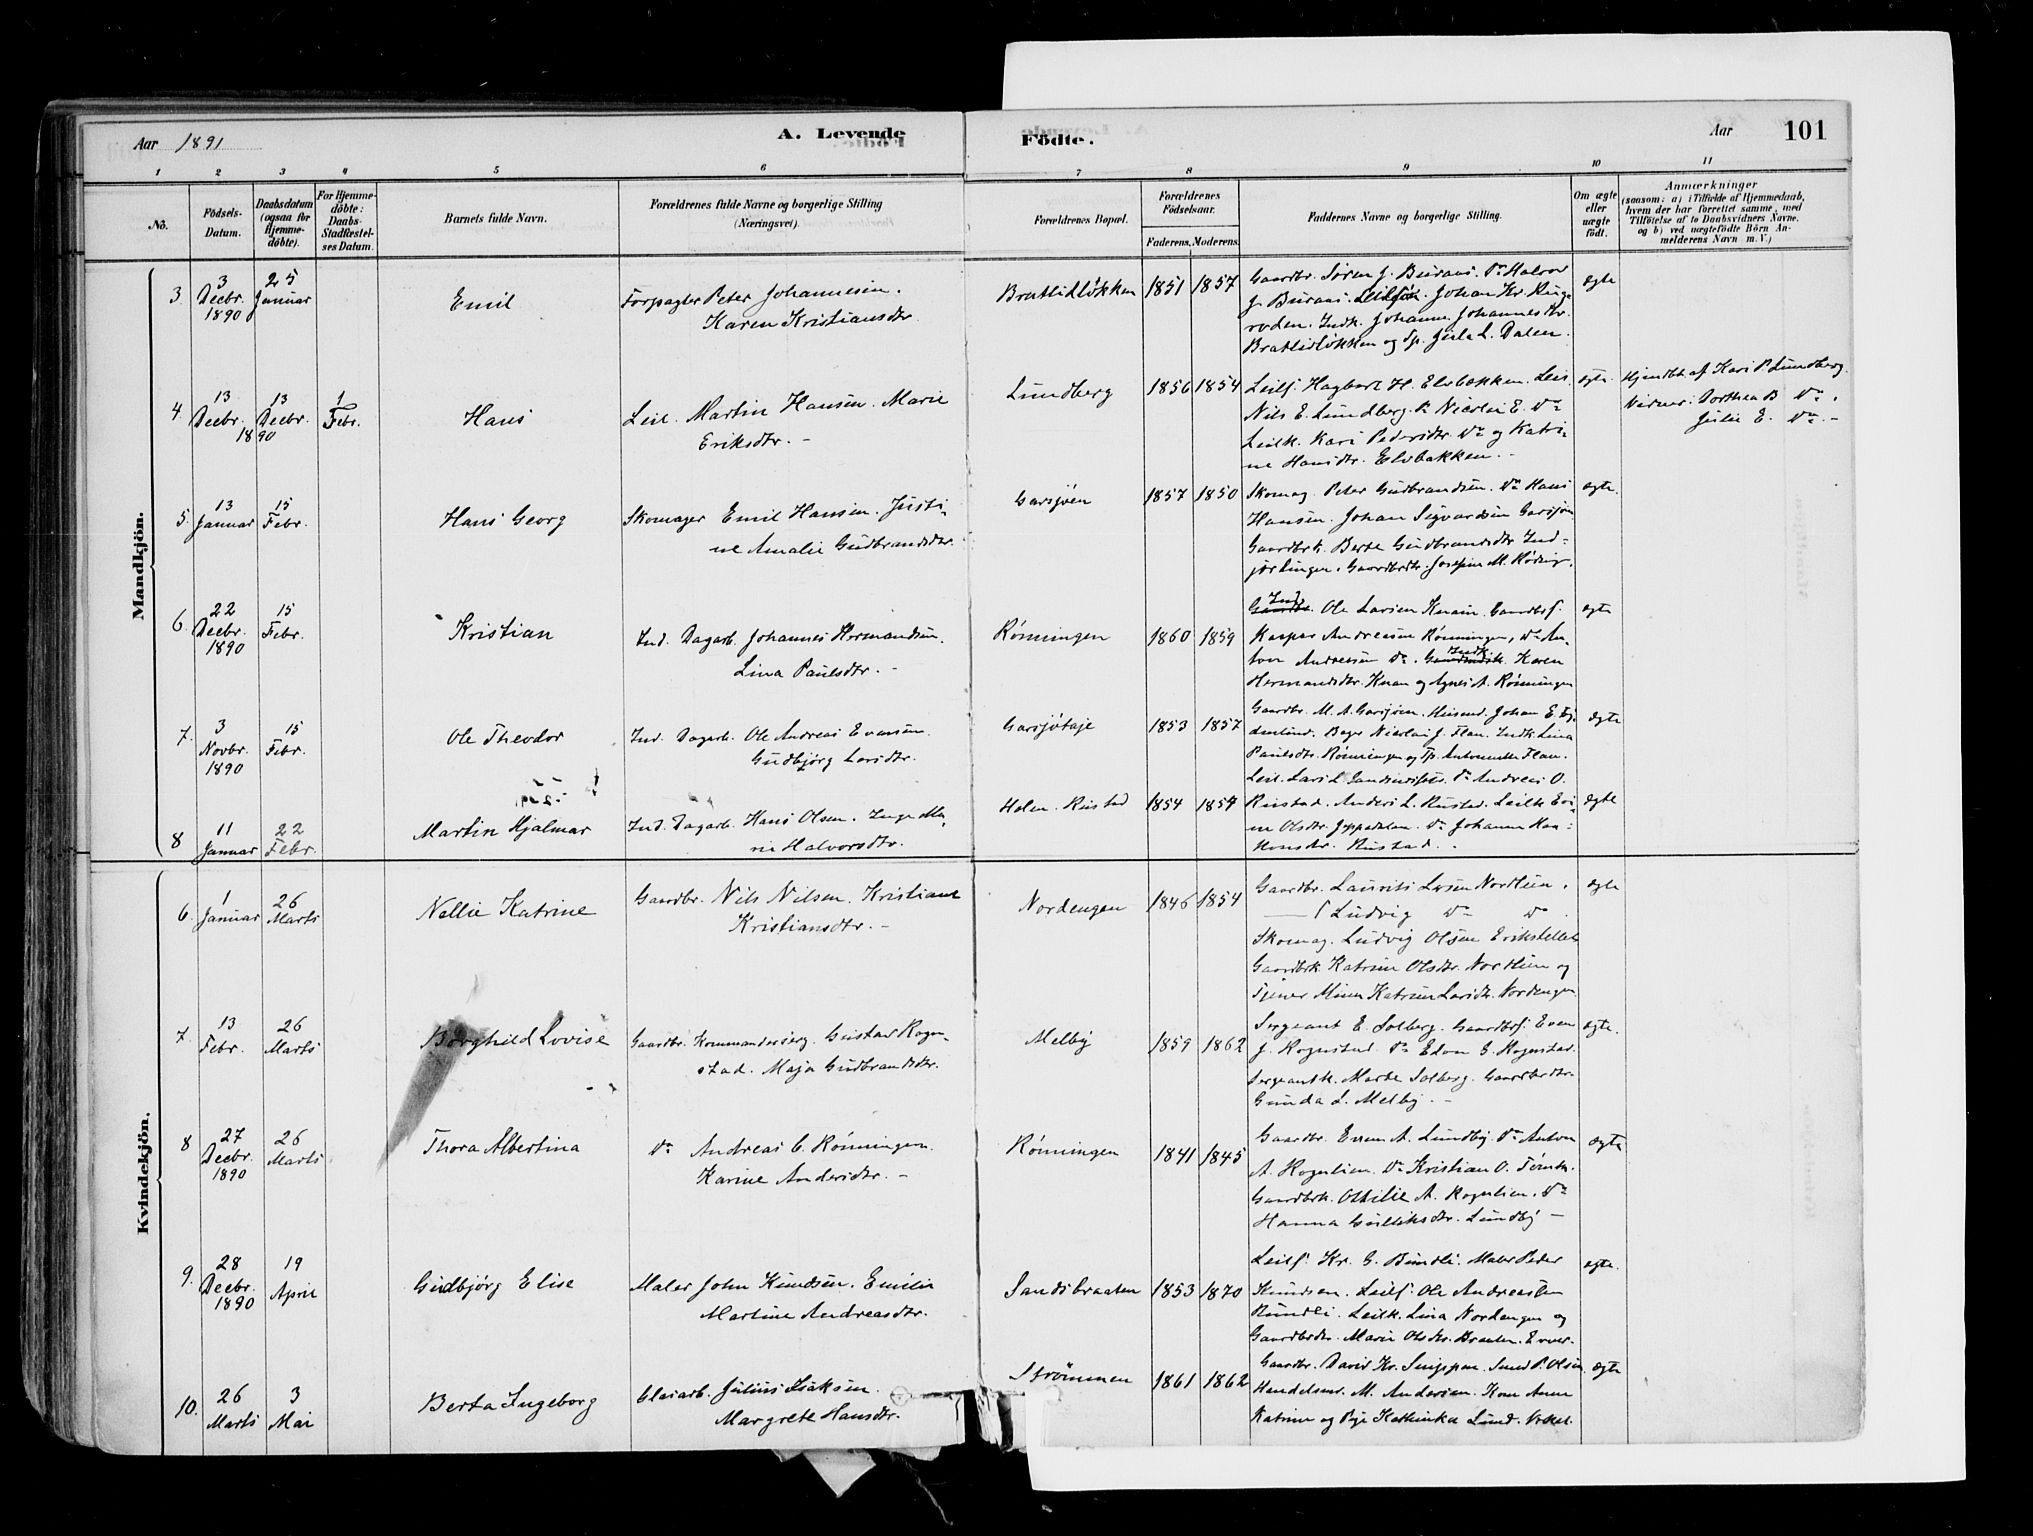 Aar 1891
A. Levende
Födte.
Aar 101
1 2 3 4 5 6 7 8 9 10 11
No.
Födsels-
Datum.
Daabsdatum
(ogsaa for
Hjemme-
döbte).
For Hjemme-
döbte:
Daabs-
Stadfæstel-
ses Datum.
Barnets fulde Navn.
Forældrenes fulde Navne og borgerlige Stilling
(Næringsvei).
Forældrenes Bopæl.
Forældrenes
Födselsaar.
Faderens. Moderens.
Faddernes Navne og borgerlige Stilling.
Om ægte
eller
uægte
födt.
Anmærkninger
(saasom: a) i Tilfælde af Hjemmedaab,
hvem der har forrettet samme, med
Tilföielse af to Daabsvidners Navne.
og b) ved uægtefödte Börn An-
melderens Navn m. V.)
Mandkjön.
3. 3 Decbr. 1890
25 Januar
Emil
Forpagter Peter Johannesen.
Karen Kristiansdtr.
Bratlidløkken 1851 1857
Gaardbr. Søren J. Buraas. Do Halvor
J. Buraas. Johan Kr. Ruge
roden. Indk. Johanne Johannesdtr.
Bratlidløkken og L. Dalen.
ægte
4. 13 Decbr. 1890
13 Decbr.
1 Febr.
Hans
Leil. Martin Hansen. Marie
Eriksdtr. -
Lundberg 1856 1854
Leilf. Hagbart H. Elvbakken. Leil.
Nils E. Lundberg. Do Nicolai E. Do
Leilk. Kari Pedersdtr. Do og Katri-
ne Hansdtr. Elvbakken. -
ægte.
Hjemdbt. af Kari P. Lundberg.
Vidner: Dorthea B Do.
Julie E. Do. -
5. 13 Januar
15 Febr.
Hans Georg
Skomager Emil Hansen. Justi-
ne Amalie Gudbrandsdtr.
Garsjøen 1857 1850
Skomag. Peter Gudbrandsen. Do Hans
Hansen. Johan Sigvardsen Garsjøen
Gaardbrk. Berte Gudbrandsdtr. Ind-
Gaardbrdtr. Josefine M.
ægte.
6. 22 Decbr. 1890
15 Febr.
Kristian
Ind. Dagarb. Johannes Hermandsen.
Lina Paulsdtr. -
Rønningen 1860 1859
Ind. Ole Larsen Gaardbrf.
Kaspar Andreasen Rønningen, Do An-
ton Andreasen Do. Indk. Karen
Hermandsdtr. og Agnes A. Rønningen
ægte
7. 3 Novbr. 1890
15 Febr.
Ole Theodor
Ind. Dagarb. Ole Andreas Evensen.
Gudbjørg Larsdtr.
Garsjøteje 1853 1857
Gaardbr. M. A. Garsjøen. Johan E.
Nicolai J. Flan. Indk. Lina
Paulsdtr. Rønningen og Antonette Flan.
ægte
8 11 Januar
22 Febr.
Martin Hjalmar
Ind. Dagarb. Hans Olsen. Inge Ma-
rie Halvorsdtr.
Holen. Rustad 1854 1857
Leil. Lars L. Do Andreas O.
Rustad. Anders L. Rustad. Leilk. Evi-
ne Olsdtr. Jeppedalen. Do Johanne Haa-
konsdtr. Rustad. -
ægte
Kvindekjön.
6. 1 Januar
26 Marts
Nellie Katrine
Gaardbr. Nils Nilsen. Kristiane
Kristiansdtr. -
Nordengen 1846 1854
Gaardbr. Laurits Larsen Nordlien.
Ludvig Do Do.
Skomag. Ludvig Olsen Erikstellet
Gaardbrk. Katrine Olsdtr. Nordlien og
Tjener Mina Katrine Larsdtr. Nordengen
ægte
7 13 Febr.
26 Marts
Borghild Lovise
Gaardbr. Kommandersersj. Gustav Rogn-
stad. Maja Gudbrandsdtr.
Melby 1859 1862
Sergeant E. Solberg. Gaardbrf. Even
J. Rognstad. Do Edvin G. Rognstad.
Sergeantk. Marte Solberg. Gaardbrdtr.
Gunda L. Melby. -
ægte.
8 27 Decbr. 1890
26 Marts
Thora Albertina
Do Andreas C. Rønningen.
Karine Andersdtr. -
Rønningen 1841 1845
Gaardbr. Even A. Lundby. Do Anton
A. Rognlien. Do Kristian O.
Gaardbrk. Othilie A. Rognlien. Do
Hanna Gulliksdtr. Lundby -
ægte
9. 28 Decbr. 1890
19 April
Gudbjørg Elise
Maler John Knudsen. Emilie
Martine Andreasdtr.
Sandsbraaten 1853 1870
Leilf. Kr. G. Bundli. Maler Peder
Knudsen. Leilf. Ole Andreassen
Bundli. Leilk. Lina Nordengen og
Gaardbrdtr. Marie Olsdtr. Braaten.
ægte.
10. 26 Marts
3 Mai
Berta Ingeborg
Glasarb. Julius Isaksen.
Margrete Hansdtr.
Strømmen 1861 1862
Gaardbr. David Kr. P. Olsen
Handelsm. M. Andersen. Kone Anne
Katrine og Pige Kathinka Lund.
ægte